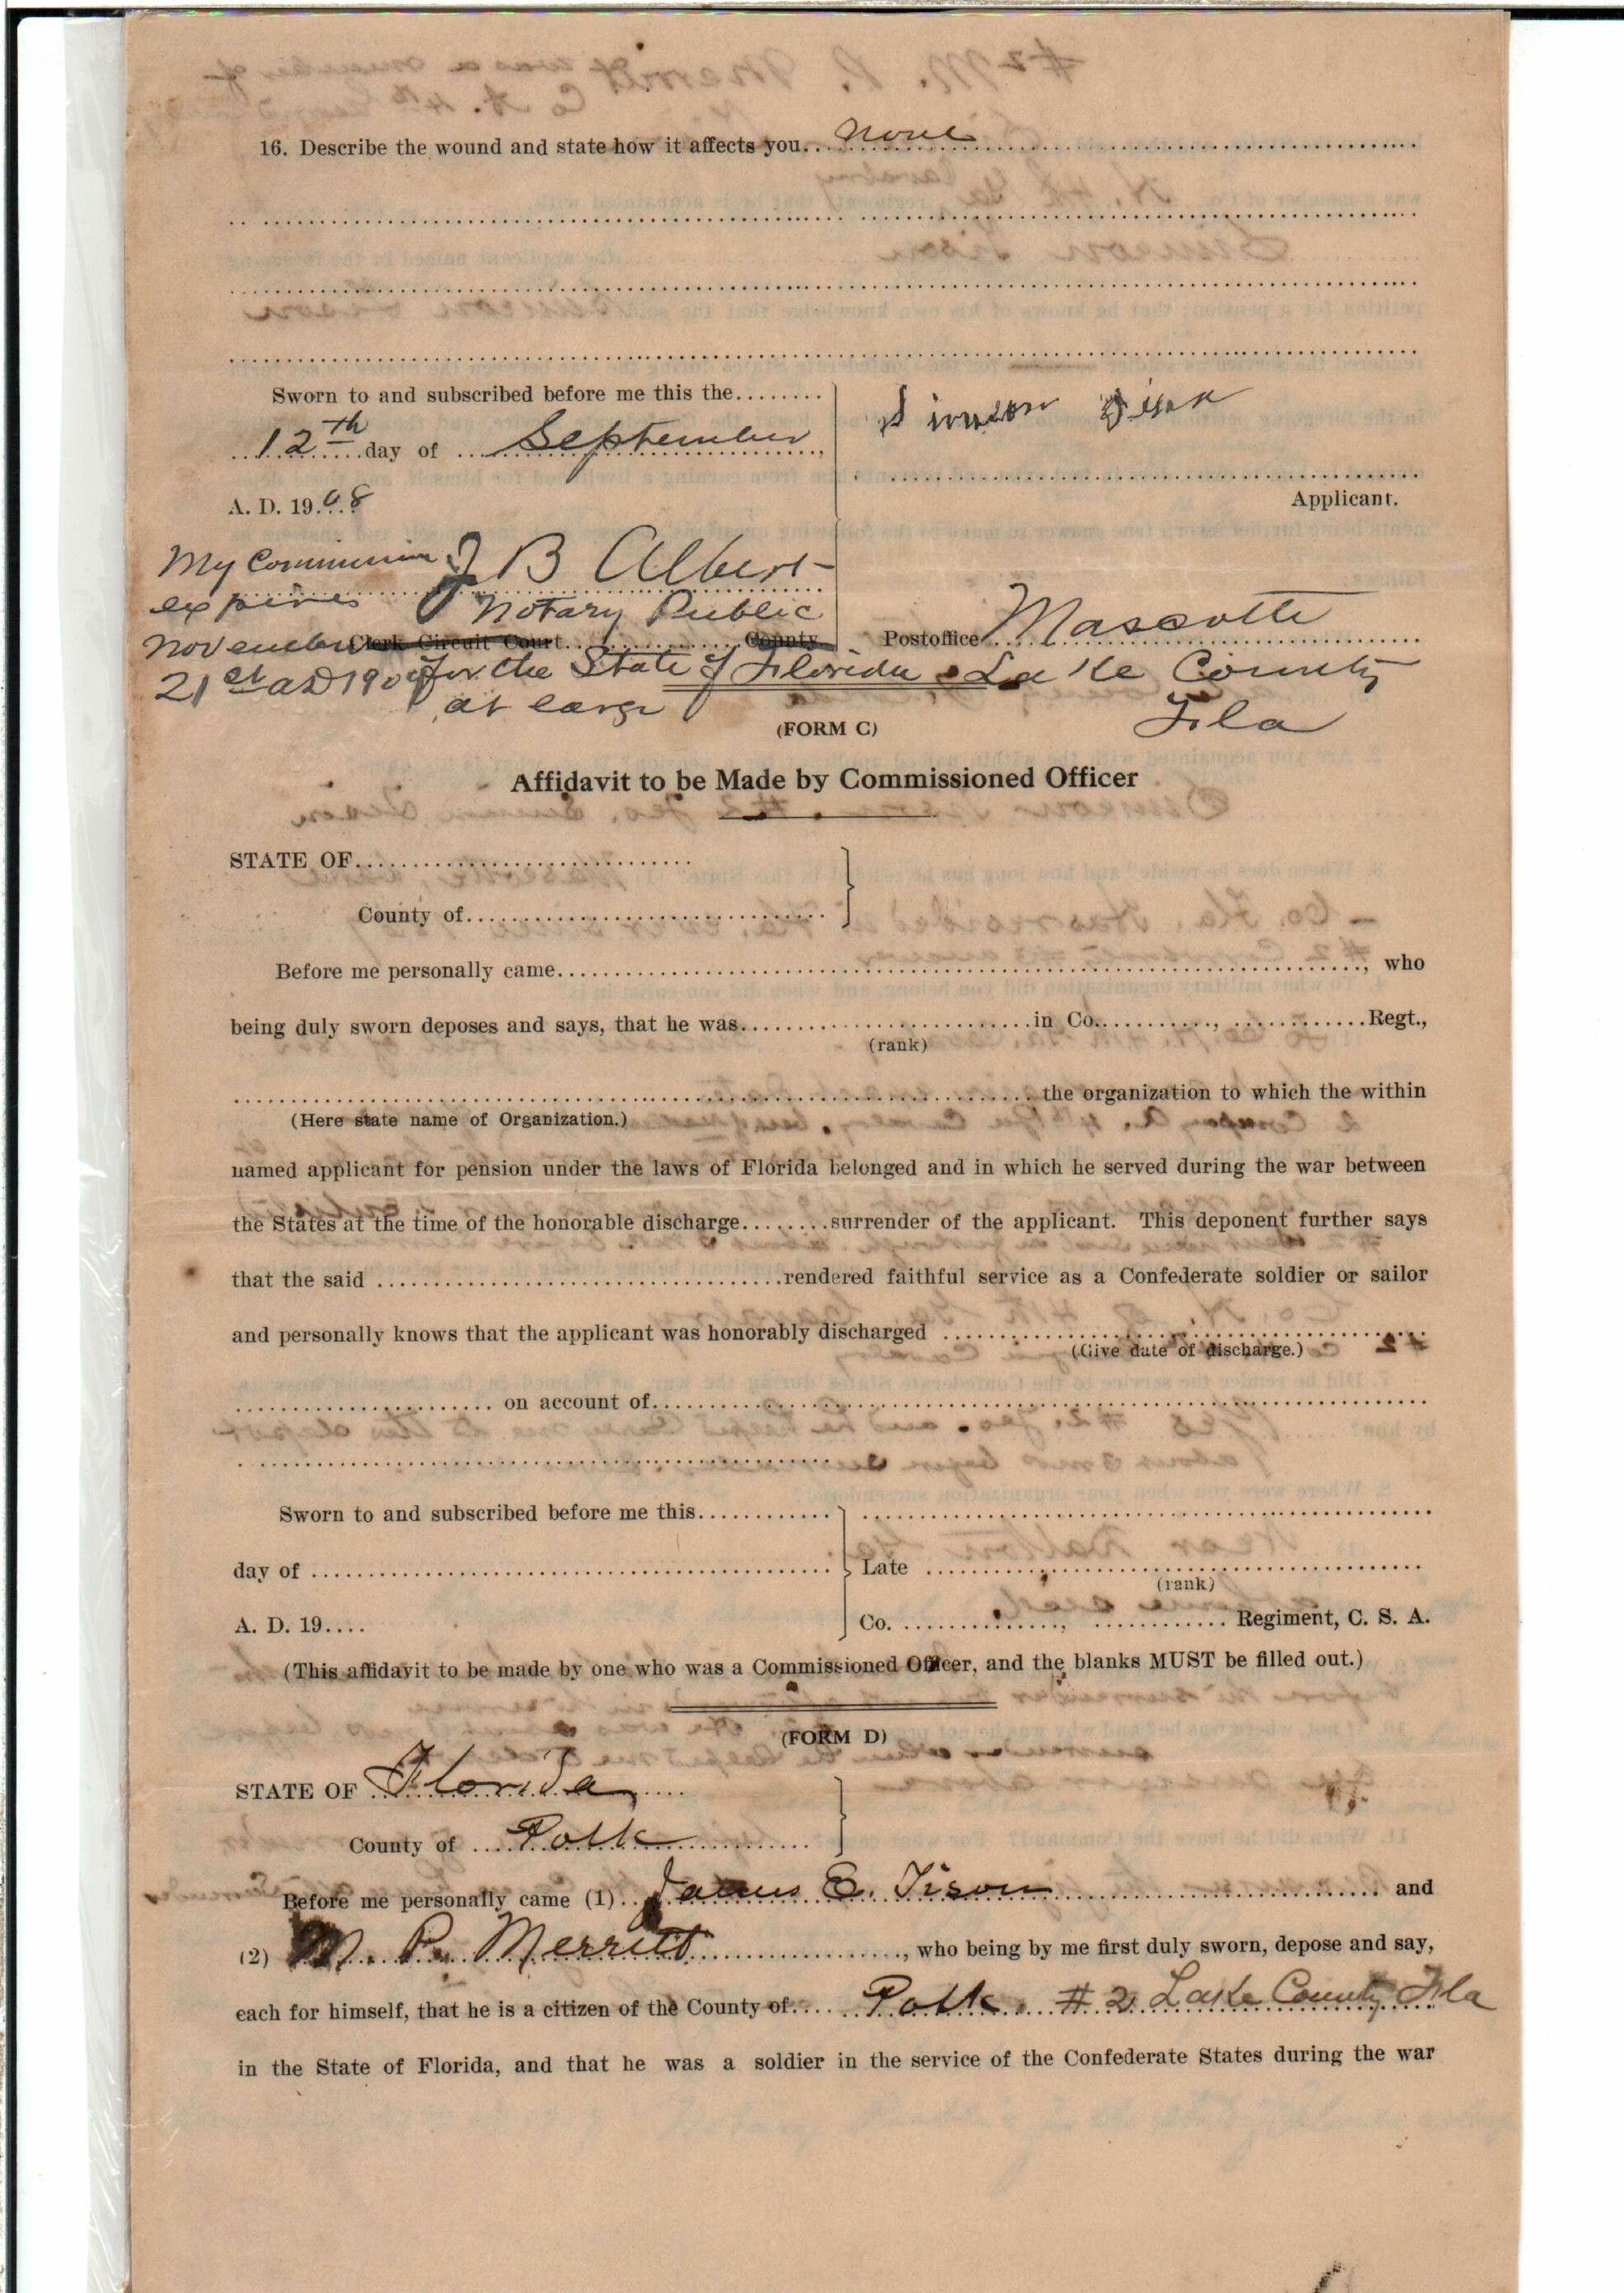 16. Describe the wound and state how it affects you... none
Sworn to and subscribed before me this the........
12th day of September,
A. D. 1908
Simeon
Applicant.
My Commission J B Albert
expires Notary Public
November Clerk Circuit Court.......... County
21st AD 190 for the State of Florida
at large
Postoffice Mascotte
Lake County
Fla
(FORM C)
Affidavit to be Made by Commissioned Officer
STATE OF..............................
County of..............................
Before me personally came.............................., who
being duly sworn deposes and says, that he was....................in Co..........., ............Regt.,
(rank)
.............................. the organization to which the within
(Here state name of Organization.)
named applicant for pension under the laws of Florida belonged and in which he served during the war between
the States at the time of the honorable discharge........surrender of the applicant. This deponent further says
that the said ..............................rendered faithful service as a Confederate soldier or sailor
and personally knows that the applicant was honorably discharged ..............................
(Give date of discharge.)
.................... on account of..............................
Sworn to and subscribed before me this............
day of ..............................
A. D. 19....
Late ..............................
(rank)
Co. ..............., ............ Regiment, C. S. A.
(This affidavit to be made by one who was a Commissioned Officer, and the blanks MUST be filled out.)
(FORM D)
STATE OF Florida
County of Polk
Before me personally came (1) James E. Tison and
(2) M. P. Merritt, who being by me first duly sworn, depose and say,
each for himself, that he is a citizen of the County of Polk. #2 Lake County Fla
in the State of Florida, and that he was a soldier in the service of the Confederate States during the war